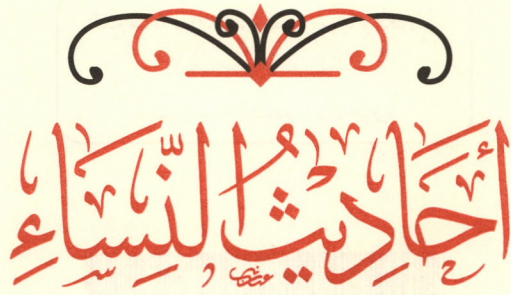 أَحَادِيثُ النِّسَاءِ